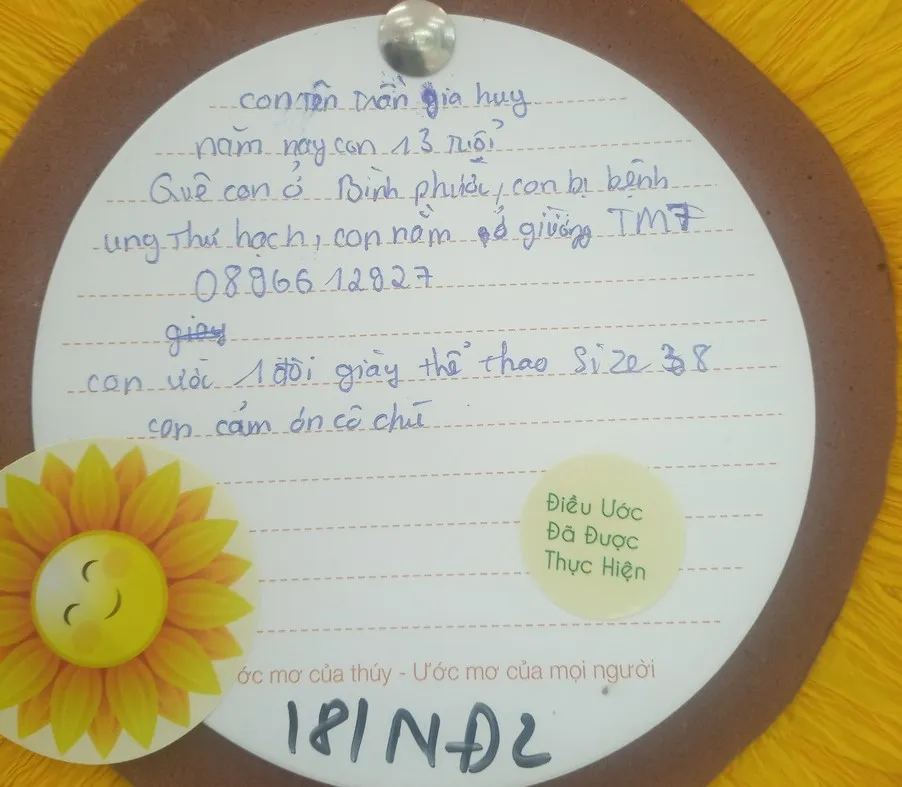 con tên Trần gia huy
năm nay con 13 tuổi
Quê con ở Bình phước, con bị bệnh
ung thư hạch, con nằm ở giường TM7
0896612927
giày
con ước 1 đôi giày thể thao Size 38
con cảm ơn cô chú
Điều Ước
Đã Được
Thực Hiện
ớc mơ của thúy - Ước mơ của mọi người
181NĐ2